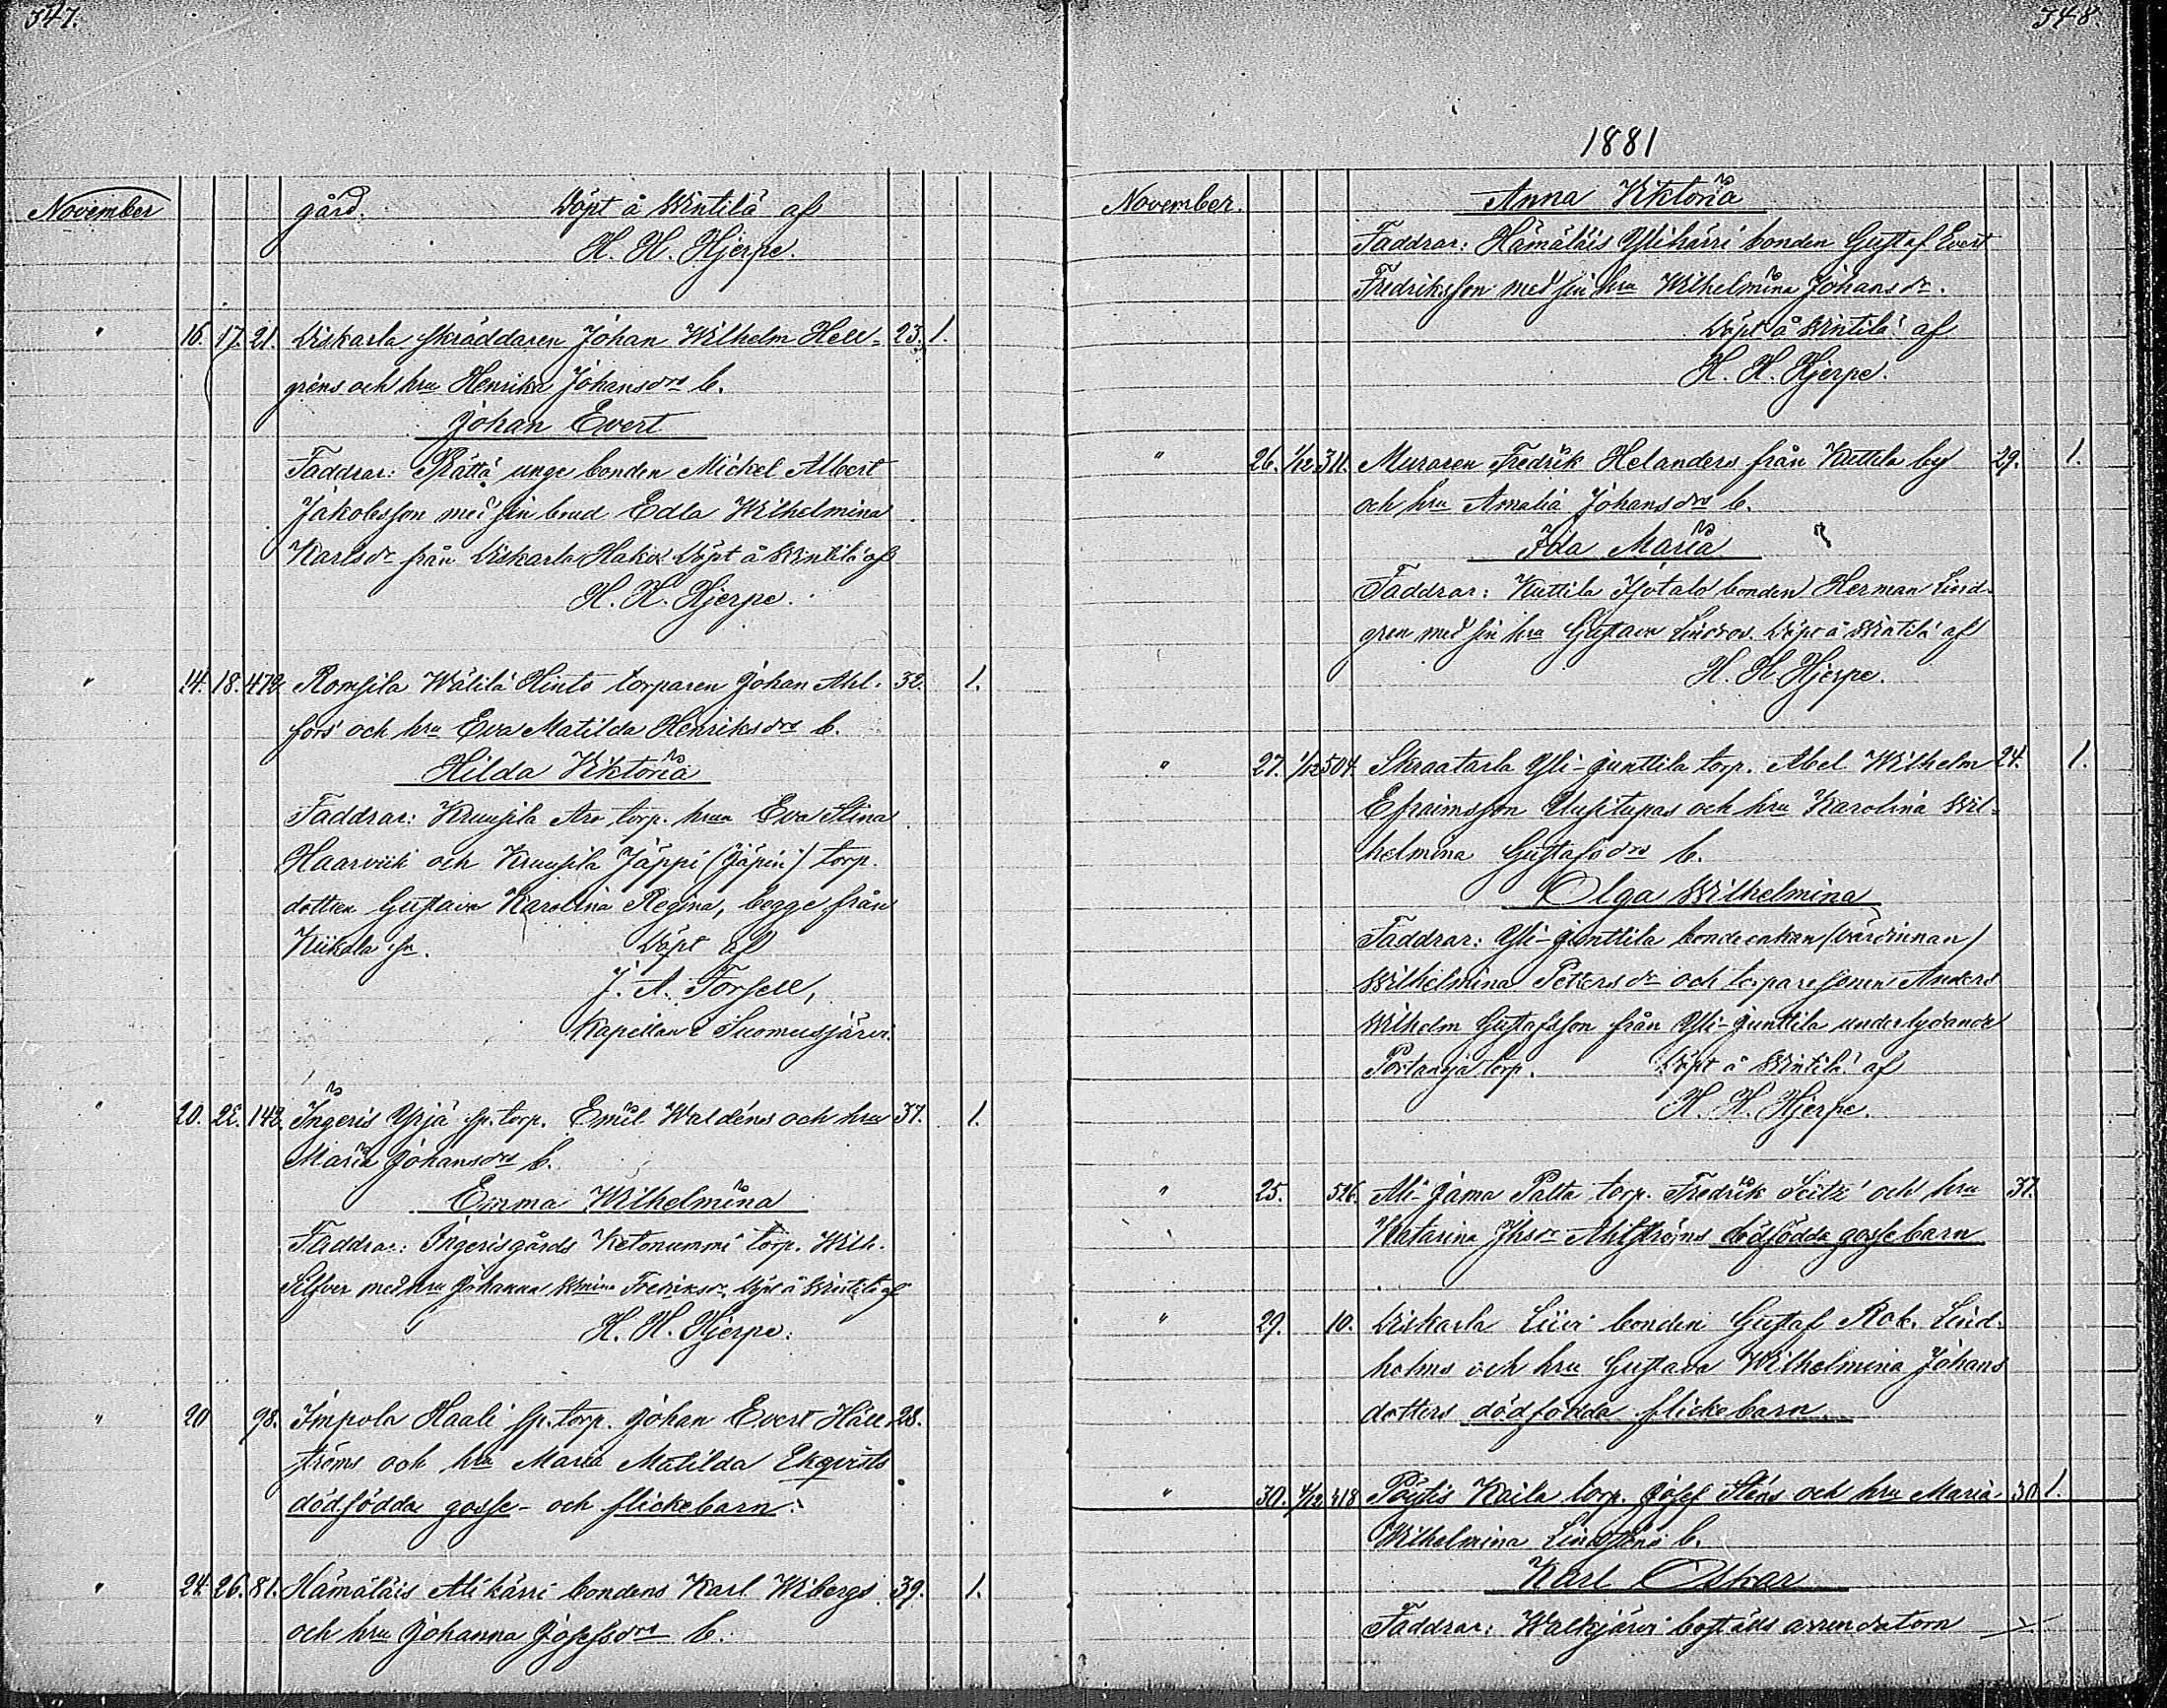 347.
November gård. Döpt å Wintilä af
H. H. Hjerpe.
" 16. 17. 21. Wiskarla skräddaren Johan Wilhelm Hell- 23. 1.
gréns och hru Henrika Johansdrs b.
Johan Evert
Faddrar: Prättä unge bonden Mickel Albert
Jakobsson med sin brud Edla Wilhelmina
Karlsdr från Wiskarla Hakoi. Döpt å Wintilä af
H. H. Hjerpe.
" 14. 18. 472. Romsila Wälilä Hinto torparen Johan Ahl- 32. 1.
fors och hru Eva Matilda Henriksdrs b.
Hilda Viktoria
Faddrar: Kruusila Aro torp. hrun Eva Stina
Haarvik och Kruusila Jäppi (Jäpin) torp.
dottren Gustava Karolina Regina, begge från
Kiikala sn. Döpt af
J. A. Forsell,
Kapellan i Suomusjärvi.
" 20. 22. 142. Ingeris Yrjä sp. torp. Emil Waldéns och hru 37. 1.
Maria Johansdrs b.
Emma Wilhelmina
Faddrar: Ingerisgårds Ketonummi torp. Wilh.
Silfver med hru Johanna Wmina Fredriksdr Döpt å Wintilä af
H. H. Hjerpe.
" 20 98. Impola Haali sp. torp. Johan Evert Häll- 28.
ströms och hru Maria Matilda Ekqvists
dödfödda gosse- och flickebarn.
" 24. 26. 81. Hämäläis Alikärri bondens Karl Wibergs 39. 1.
och hru Johanna Josefsdrs b.
348.
1881
November. Anna Viktoria
Faddrar: Hämäläis Ylikärri bonden Gustaf Evert
Fredriksson med sin hru Wilhelmina Johansdr.
Döpt å Wintilä af
H. H. Hjerpe.
" 26. 1/12 311. Muraren Fredrik Helanders från Kuttila by 29. 1.
och hru Amalia Johansdrs b.
Ida Maria
Faddrar: Kuttila Isotalo bonden Herman Lind-
gren med sin hru Gustava Lindroos. Döpt å Wintilä af
H. H. Hjerpe.
" 27. 1/12 504. Skraatarla Yli-Junttila torp. Abel Wilhelm 24. 1.
Efraimsson Uusitupas och hru Karolina Wil-
helmina Gustafsdrs b.
Olga Wilhelmina
Faddrar: Yli-Junttila bondeenkan (värdinnan)
Wilhelmina Pettersdr och torparesonen Anders
Wilhelm Gustafsson från Yli-Junttila underlydande
torp. Döpt å Wintilä af
H. H. Hjerpe.
" 25. 526. Ali-Jama Palta torp. Fredrik och hru 37.
Katarina Jhsdr Ahlströms dödfödda gossebarn
" 29. 10. Wiskarla Liivi bonden Gustaf Rob. Lind-
holms och hru Gustava Wilhelmina Johans
dotters dödfödda flickebarn.
" 30. 4/12 418 Pöytis Kaila torp. Josef Sténs och hru Maria 30. 1.
Wilhelmina b.
Karl Oskar
Faddrar: Walkjärvi boställs arrendatorn